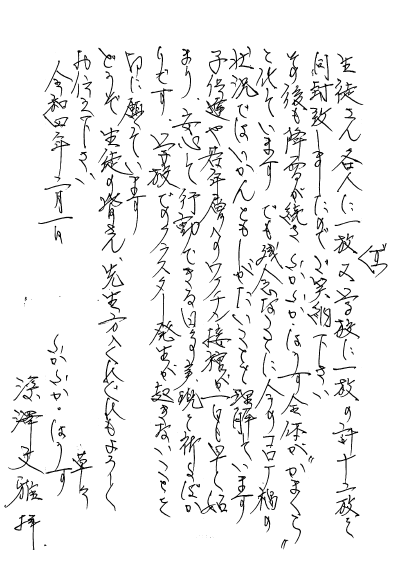 生徒さん各人に一放又学放に一放の計十二放を
ずつ
同封致しましたのでご笑納下さい
その後も降雪が続き ふかふか・はうす全体が“かまくら”
と化しています でも残念なことに 今のコロナ禍の
状況ではいかんともしがたいことと理解しています
子供達や若年層へのワクチン接種が一日も早く始
まり、安心して行動できる日々の実現を祈るばか
りです。学放でのクラスター発生が起きないことを
切に願っています
どうぞ生徒の皆さん、先生方へくれぐれもよろしく
お伝え下さい 草々
令和四年二月一日
ふかふか・はうす
深澤文雅 拝.